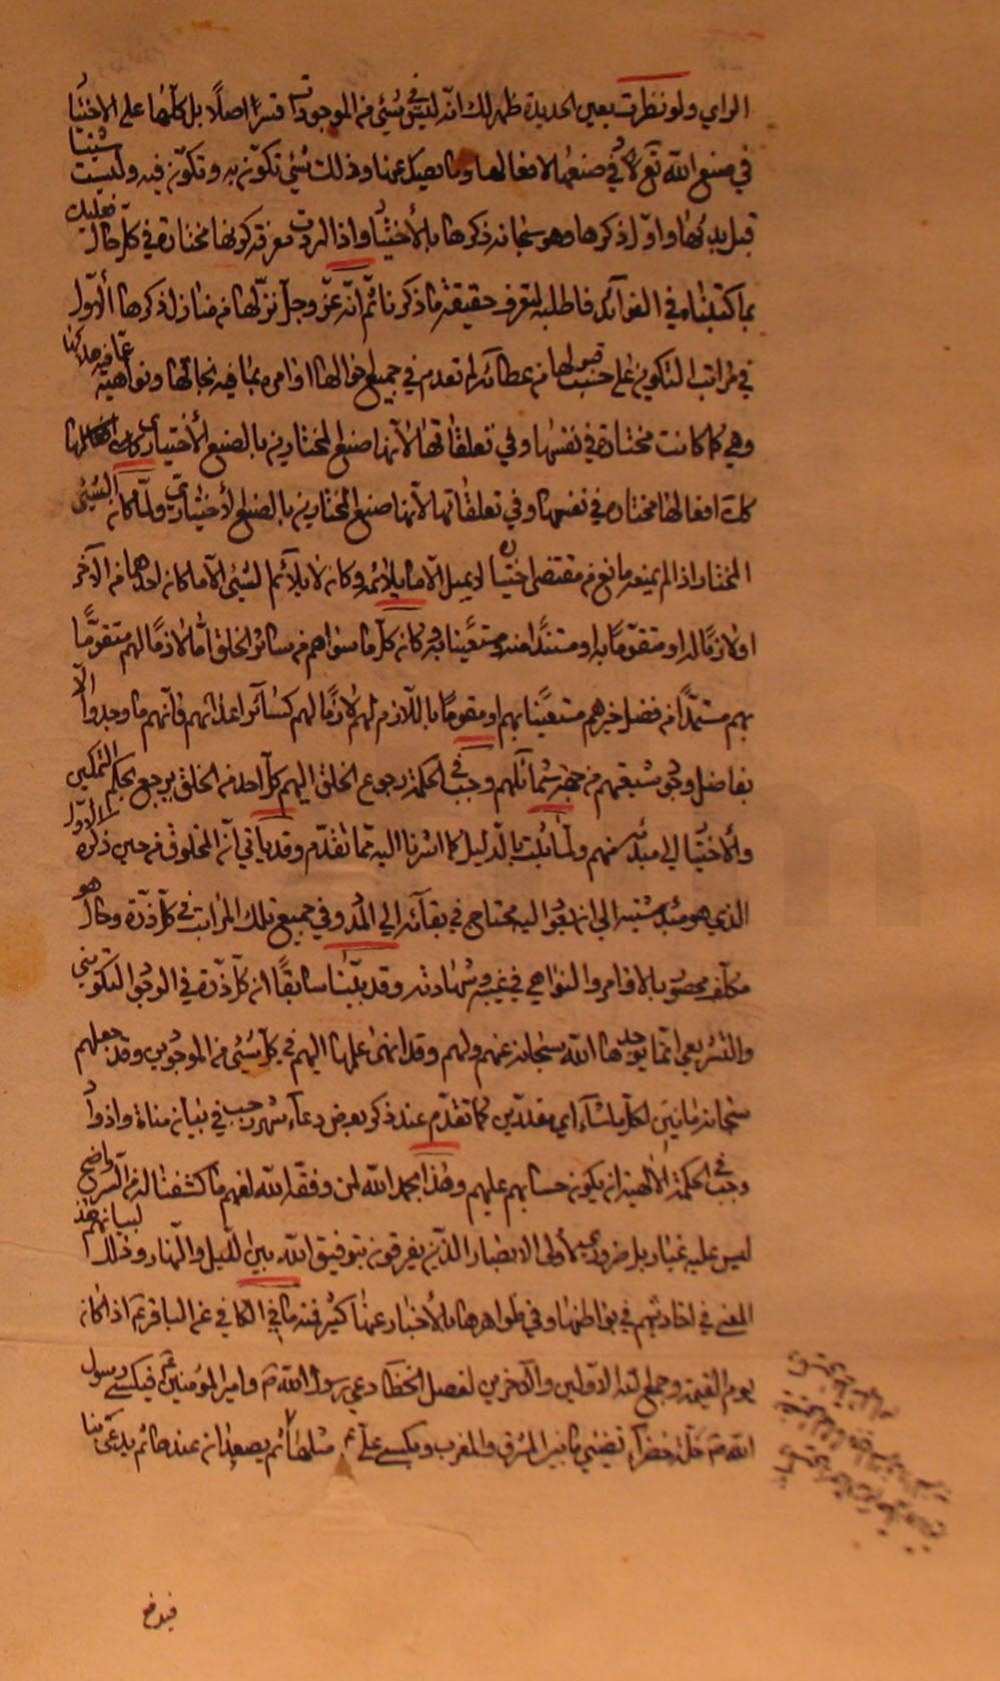 الراي ولو نظرت بعين الحديدة ظهر لك انه ليس في شيئ من الموجودات قسرا اصلا بل كلها على الاختيا
في صنع الله تع لا في صنعها لافعالها وما يصدر عنها وذلك شيئ تكونه به وتكونه فيه وليست شيئا
قبل بدئها واول ذكرها وهو سبحانه ذكرها بالاختيا واذا اردت معرفة كونها مختارة في كل حال فعليك
بما كتبناه في الفوائد فاطلبه لتعرف حقيقة ما ذكرنا ثم انه عز وجل نزلها من منازل ذكرها الاول
في مراتب التكوين على حسب قبولها من عطائه لم تعدم في جميع احوالها اوامره بما فيه نجاتها ونواهيه عما فيه هلاكها
وهي كما كانت مختارة في نفسها وفي تعلقاتها لانها صنع المختارين بالصنع الاختياري
كك افعالها مختاره في نفسها وفي تعلقاتها لانها صنع المختارين بالصنع الاختياري ولما كان الشيئ
المختار اذا لم يمنعه مانع من مقتضى اختيا لا يميل الا ما يلائمه وكان لا يلائم الشيئ الا ما كان احدهما من الآخر
او لازما له او متقوما به او مستندا منه ومتعينا به وكان كل ما سواهم من سائر الخلق اما لازما لهم متقوما
بهم مستمدا من فضل خيرهم متعينا بهم او مقوما باللازم لهم لازما لهم كسائر اعدائهم فانهم ما وجدوا الا
بفاضل وجو شيعتهم من جهة شمائلهم وجب في الحكمة رجوع الخلق اليهم كل احد من الخلق يرجع بحكم التمكين
والاختيا الى مبدئه منهم ولما ثبت بالدليل كما اشرنا اليه مما تقدم وقد ياتي ان المخلوق من حين ذكره الاول
الذي هو مبدء شيئيته الى انتهى اليه محتاج في بقائه الى المدد وفي جميع تلك المراتب في كل ذرة وحال هو
مكلف محصو بالاوامر والنواهي في غيبه وشهادته وقد بينا سابقا ان كل ذرة في الوجو التكويني
والتشريعي انما يوجدها الله سبحانه عنهم ولهم وقد انهى علمها اليهم في كل شيئ من الموجودين وقد جعلهم
سبحانه مانين لكل ما شاء اي مقدرين كما تقدم عند ذكر بعض دعاء شهر رجب في بيان مناة واذوا
وجب في الحكمة الالهية ان يكون حسابهم عليهم وهذا بحمد الله لمن وفقه الله لفهم ما كشفنا له من السر واضح
ليس عليه غبار بل ضروري عند اولى الابصار الذين يفرقون بتوفيق الله بين الليل والنهار وذلك لبيانهم هذا
المعنى في احاديثهم في بواطنها وفي ظواهرها بالاخبار عنها كثير فمنه ما في الكافي عن الباقر ع اذا كان
يوم القيمة وجمع الله الاولين والآخرين لفصل الخطا دعي رسول الله ص وامير المؤمنين ع فيكسى رسول
الله ص حلة خضراء تضيئ ما بين المشرق والمغرب ويكسى علي ع مثلها ثم يصعدان عندها ثم يدعى بنا
فيدفع